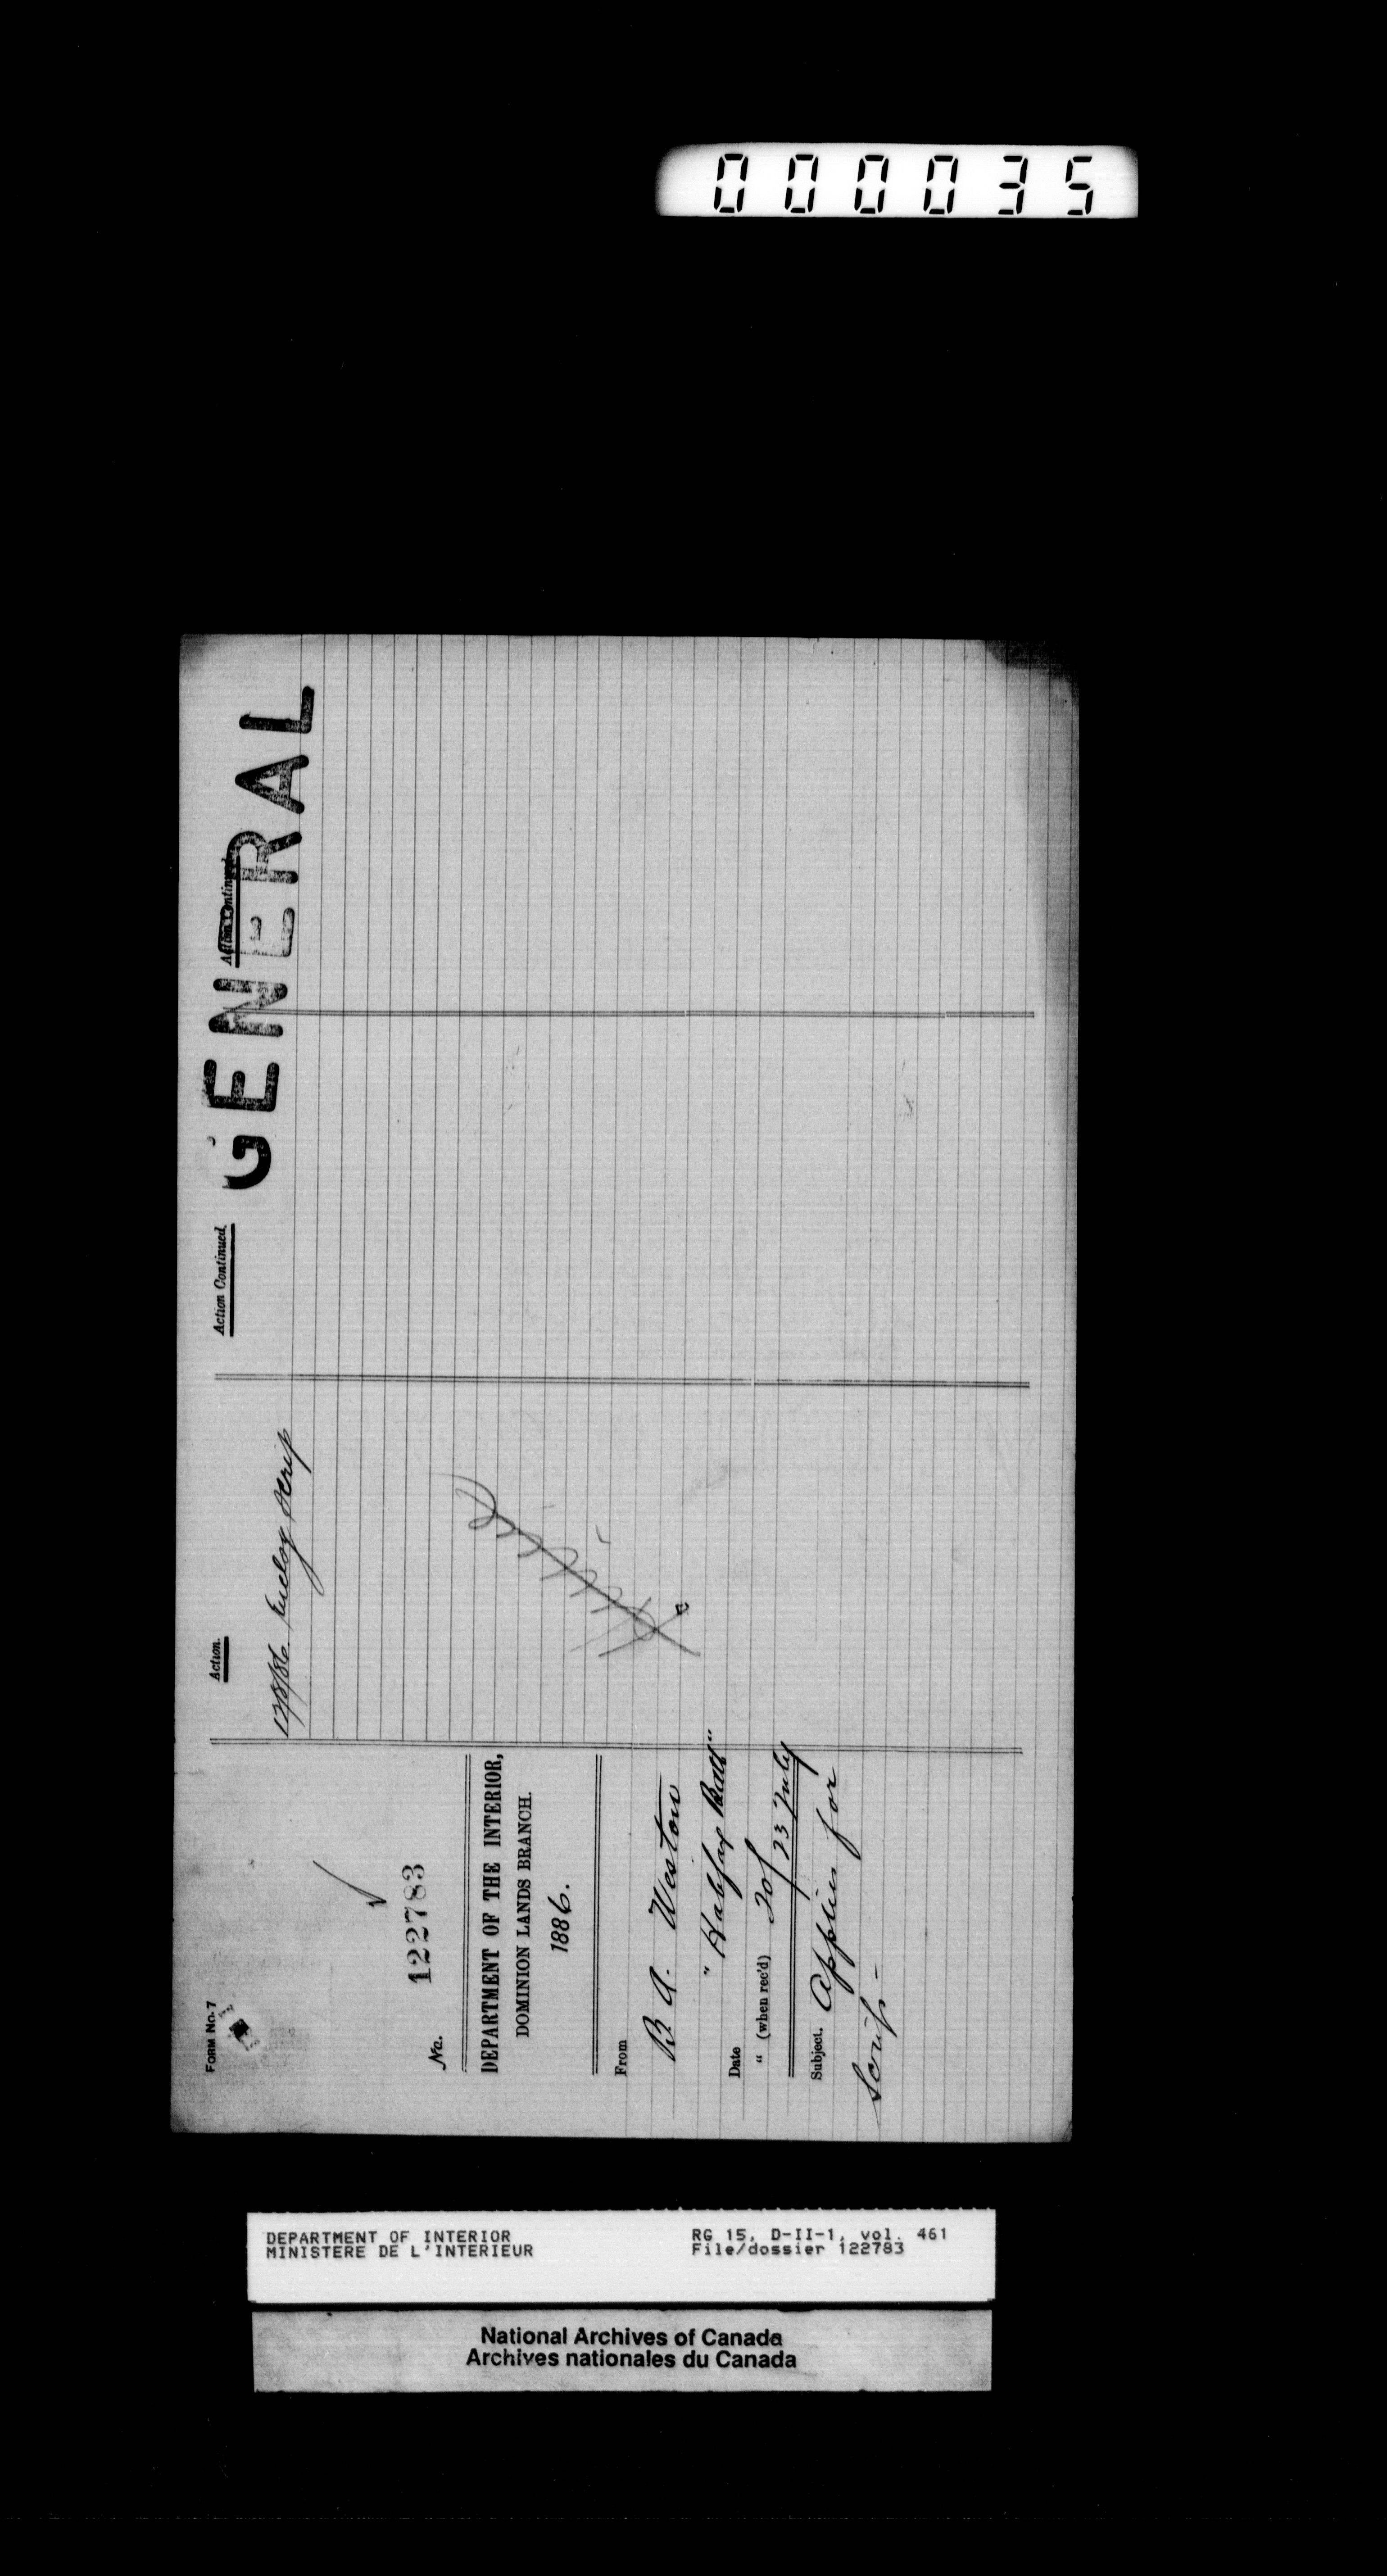 000035
FORM No. 7
No. 122783
DEPARTMENT OF THE INTERIOR,
DOMINION LANDS BRANCH.
1886.
From
B. A. Weston
" Halifax Batt"
Date 20/
" (when rec'd) 23 July
Subject. Applies for
Scrip -
Action.
12/8/86. Enclog Scrip
Action Continued.
Action Continued.
GENERAL
DEPARTMENT OF INTERIOR
MINISTERE DE L'INTERIEUR
RG 15, D-II-1, vol. 461
File/dossier 122783
National Archives of Canada
Archives nationales du Canada